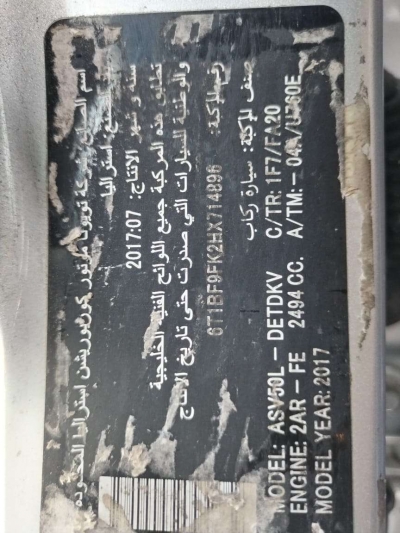 اسم الصانع: شركة تويوتا موتور كوربوريشن استراليا المحدودة
بلد الصنع: استراليا
سنة و شهر الانتاج: 2017:07
تطابق هذه المركبة جميع اللوائح الفنية الخليجية
والوطنية للسيارات التي صدرت حتى تاريخ الانتاج
رقم المركبة: 6T1BF9FK2HX714896
صنف المركبة: سيارة ركاب
MODEL: ASV50L - DETDKV C/TR: 1F7/FA20
ENGINE: 2AR - FE 2494 CC. A/TM: - 04A/U760E
MODEL YEAR: 2017